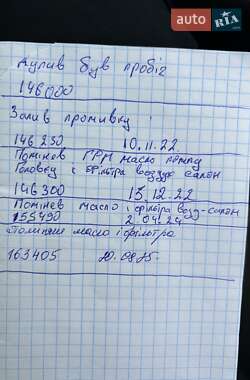 auto RIA
Купив був пробіг
146000
Залив промивку
146250 10.11.22
Поміняв ГРМ масло помпу
Головку і фільтра воздух салон
146300 13.12.22
Поміняв масло і фільтра возд-салон
155490 2.04.24
Поміняне масло і фільтра
163405 20.08.25.